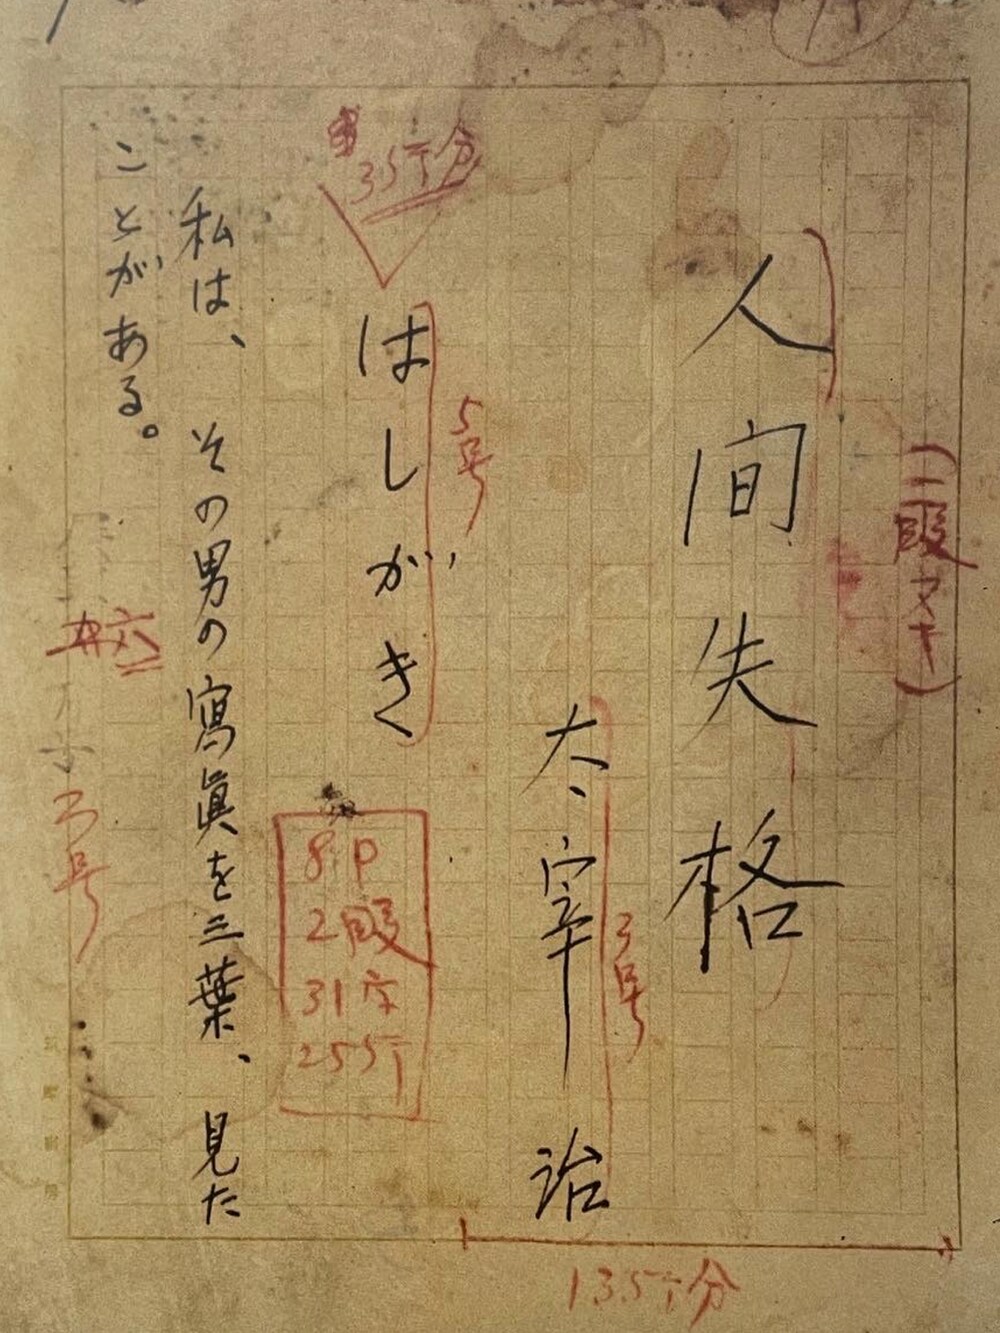 (二段ヌキ)
人間失格
太宰治
3号
はしがき
5号
3行分
8P
2段
31字
25行
私は、その男の寫眞を三葉、見た
ことがある。
3号
13行分